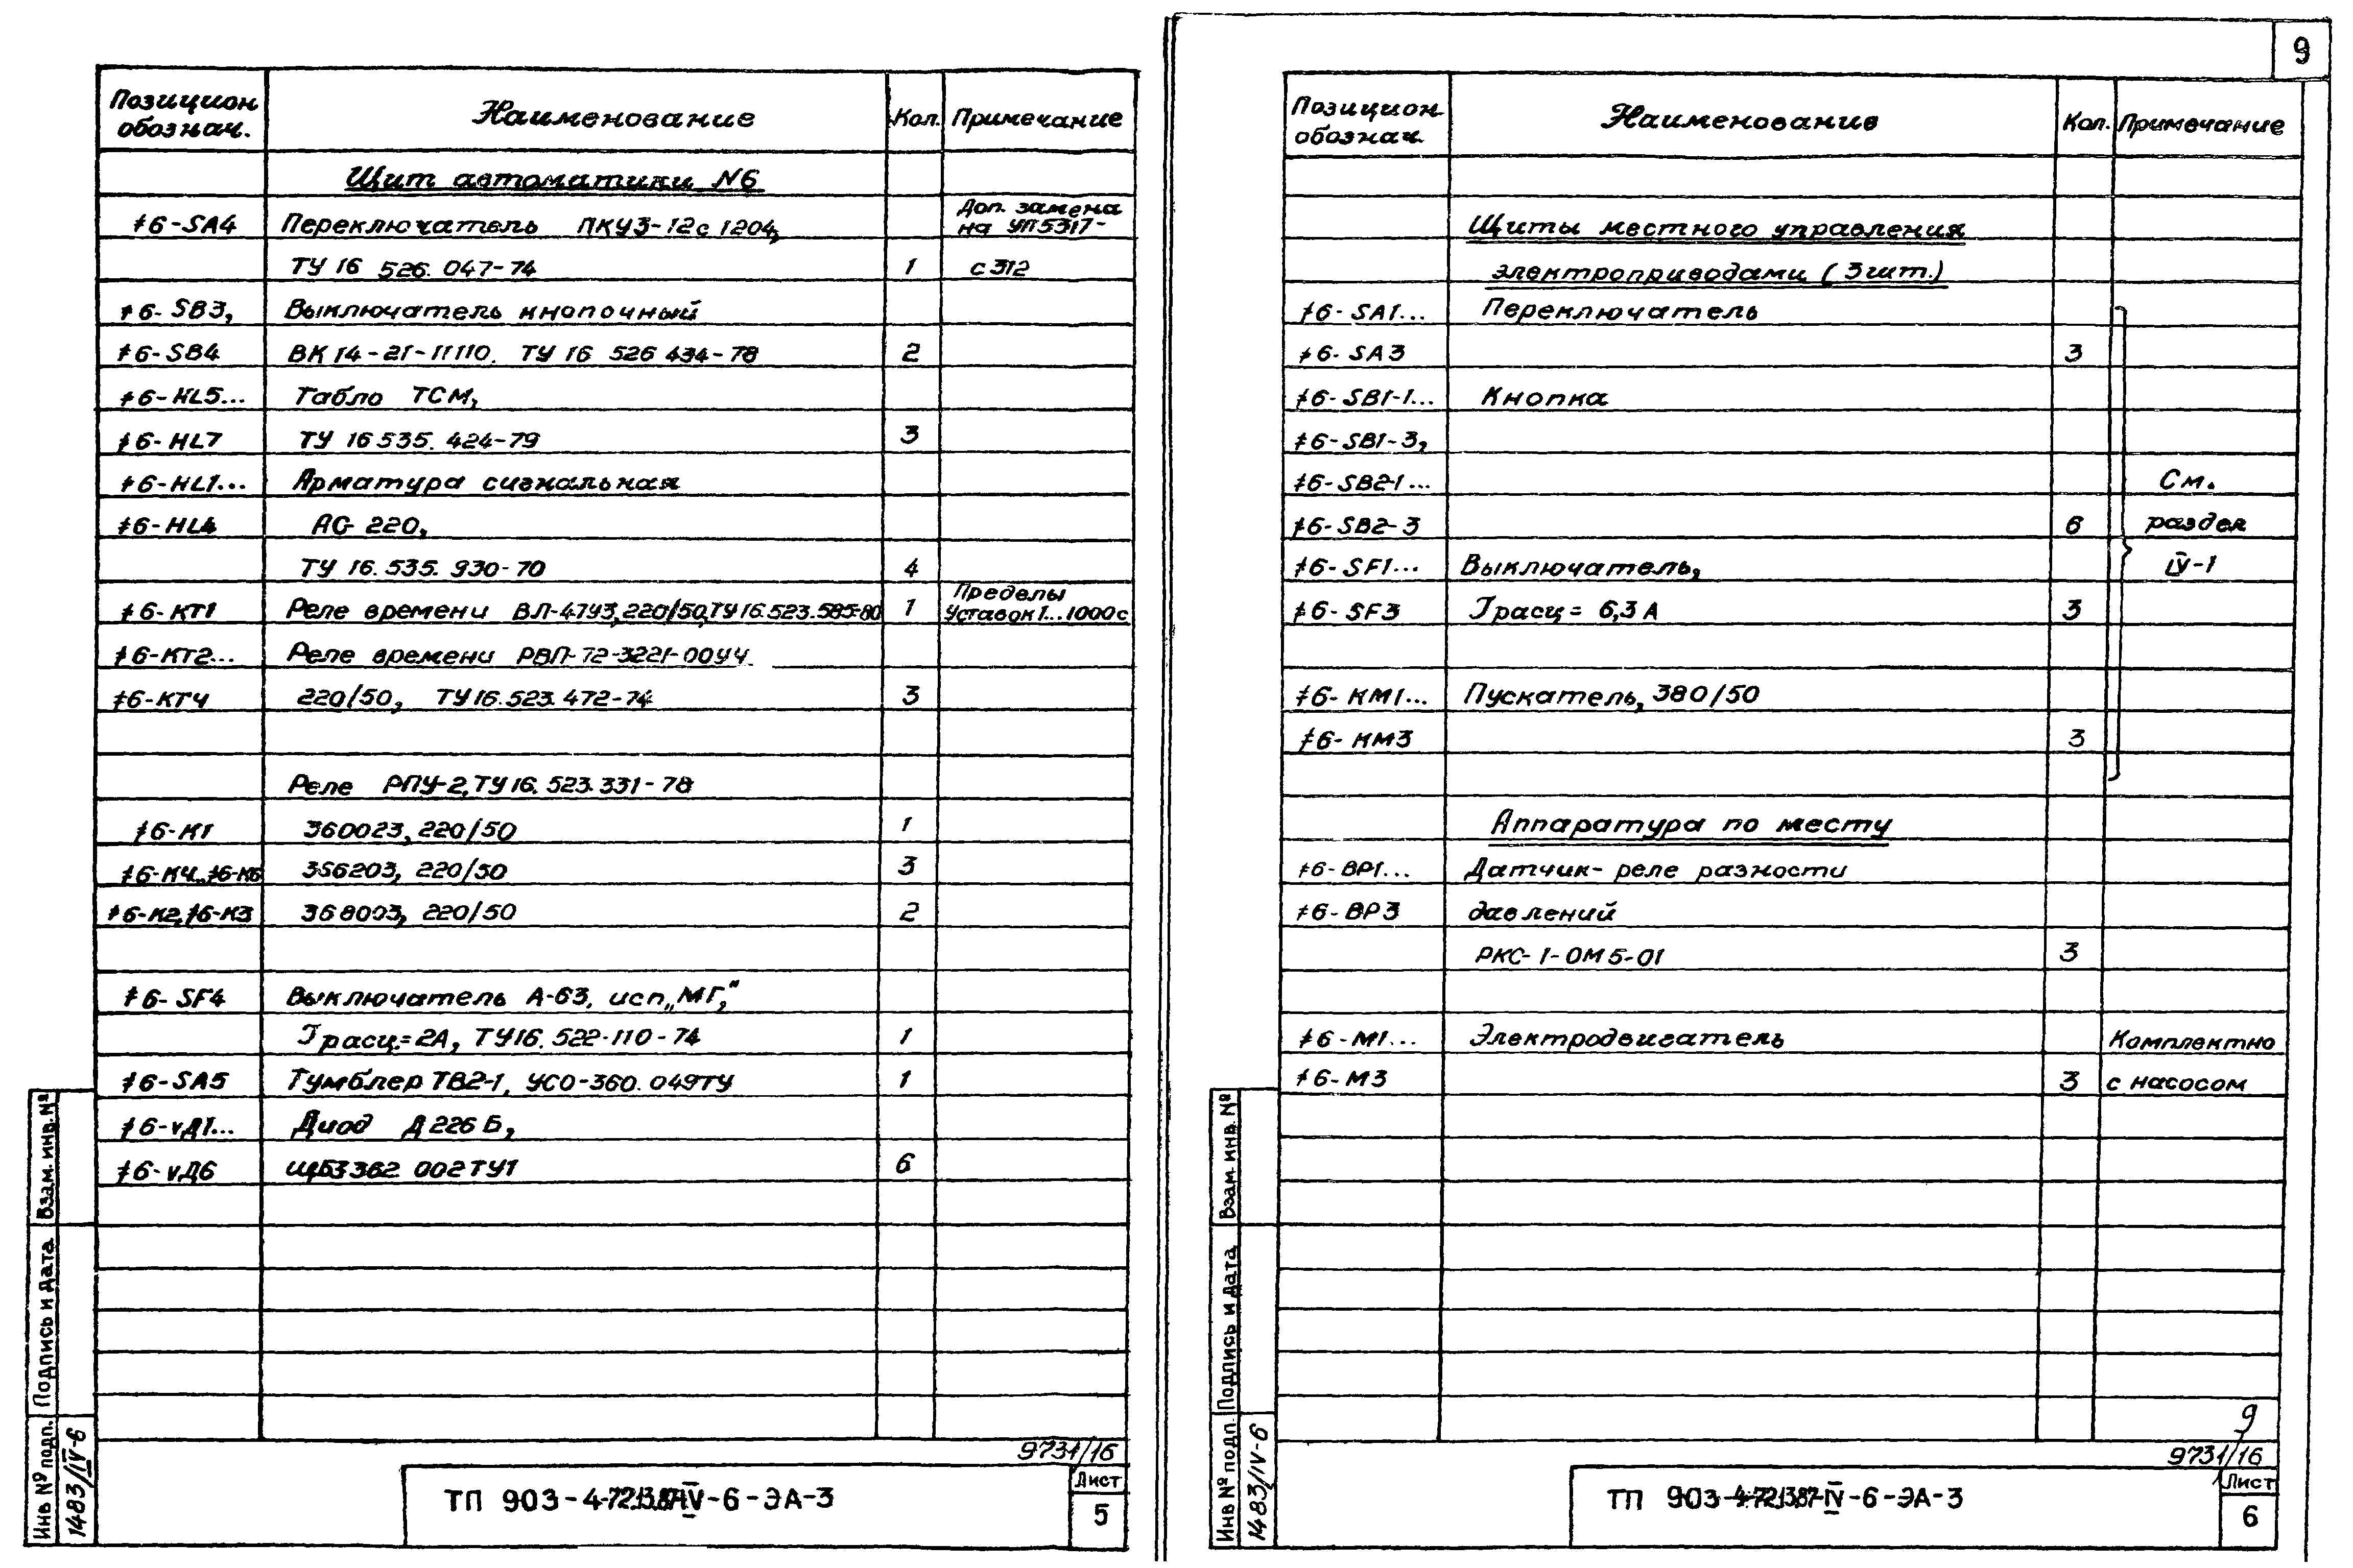 Позицион обознач. Наименование Кол. Примечание
Щит автоматики N6
Доп. замена
+6-SA4 Переключатель ПКУ3-12с 1204, на УП5317-
ТУ 16 526. 047-74 1 с312
+6-SB3, Выключатель кнопочный
+6-SB4 ВК 14-21-11110. ТУ 16 526 434-78 2
+6-HL5... Табло ТСМ,
+6-HL7 ТУ 16 535. 424-79 3
+6-HL1... Арматура сигнальная
+6-HL4 АС 220,
ТУ 16. 535. 930-70 4
Пределы
+6-КТ1 Реле времени ВЛ-47У3, 220/50, ТУ 16. 523. 585-80 1 уставок 1...1000с
+6-КТ2... Реле времени РВП-72-3221-00У4
+6-КТ4 220/50, ТУ 16. 523. 472-74 3
Реле РПУ-2, ТУ 16. 523. 331-78
+6-К1 360023, 220/50 1
+6-К4...+6-К6 356203, 220/50 3
+6-К2, +6-К3 368003, 220/50 2
+6- SF4 Выключатель А-63, исп. „МГ,“
Iрасц.=2А, ТУ16. 522-110-74 1
+6-SA5 Тумблер ТВ2-1, УСО-360. 049ТУ 1
+6-VД1... Диод Д226Б,
+6-VД6 ЩБ3 362 002ТУ1 6
9731/16
ТП 903-4-72.13.87-IV-6-ЭА-3
Лист
5
Инв № подп. Подпись и дата Взам. инв. №
1483/IV-6
9
Позицион обознач. Наименование Кол. Примечание
Щиты местного управления
электроприводами (3 шт.)
+6- SA1... Переключатель
+6- SA3 3
+6- SB1-1... Кнопка
+6- SB1-3,
+6-SB2-1... См.
+6-SB2-3 6 раздел
+6- SF1... Выключатель, IV-1
+6- SF3 Iрасц= 6,3А 3
+6- КМ1... Пускатель, 380/50
+6- КМ3 3
Аппаратура по месту
+6-ВР1... Датчик-реле разности
+6-ВР3 давлений
РКС-1-ОМ5-01 3
+6-М1... Электродвигатель Комплектно
+6-М3 3 с насосом
9
9731/16
ТП 903-4-72.13.87-IV-6-ЭА-3
Лист
6
Инв № подп. Подпись и дата Взам. инв. №
1483/IV-6